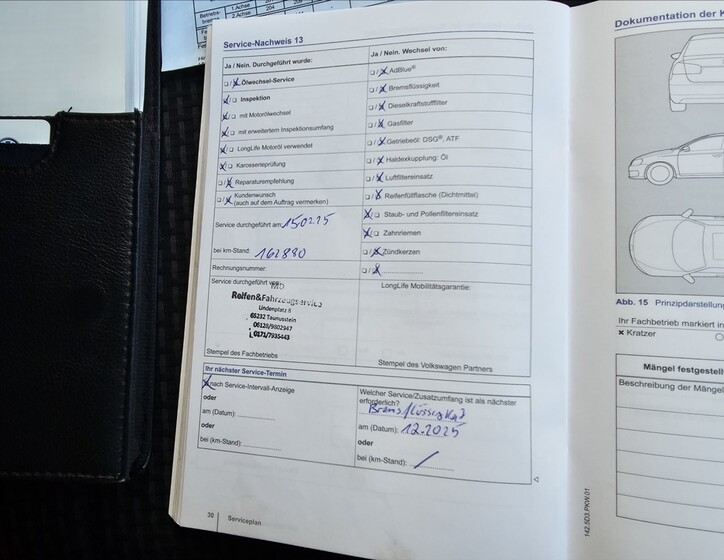 1.Achse
2.Achse
204
Service-Nachweis 13
Ja / Nein. Durchgeführt wurde:
☐/☒ Ölwechsel-Service
☒/☐ Inspektion
☒/☐ mit Motorölwechsel
☒/☐ mit erweitertem Inspektionsumfang
☒/☐ LongLife Motoröl verwendet
☒/☐ Karosserieprüfung
☐/☒ Reparaturempfehlung
☐/☒ Kundenwunsch
(auch auf dem Auftrag vermerken)
Service durchgeführt am: 150225
bei km-Stand: 162880
Rechnungsnummer:
Service durchgeführt von:
Reifen&Fahrzeugservice
Lindenplatz 8
65232 Taunusstein
06128/9802947
0171/7935443
Stempel des Fachbetriebs
Ja / Nein. Wechsel von:
☐/☒ AdBlue®
☐/☒ Bremsflüssigkeit
☐/☒ Dieselkraftstofffilter
☐/☒ Gasfilter
☐/☒ Getriebeöl: DSG®, ATF
☐/☒ Haldexkupplung: Öl
☐/☒ Luftfiltereinsatz
☐/☒ Reifenfüllflasche (Dichtmittel)
☒/☐ Staub- und Pollenfiltereinsatz
☒/☐ Zahnriemen
☐/☒ Zündkerzen
☐/☒ ..............
LongLife Mobilitätsgarantie:
Stempel des Volkswagen Partners
Ihr nächster Service-Termin
☒ nach Service-Intervall-Anzeige
oder
am (Datum):
oder
bei (km-Stand):
Welcher Service/Zusatzumfang ist als nächster
erforderlich?
Bremsflüssigkeit
am (Datum): 12.2025
oder
bei (km-Stand): /
30 Serviceplan
142.5D3.PKW.01
Dokumentation der K
Abb. 15 Prinzipdarstellun
Ihr Fachbetrieb markiert in
× Kratzer
Mängel festgestell
Beschreibung der Mängel